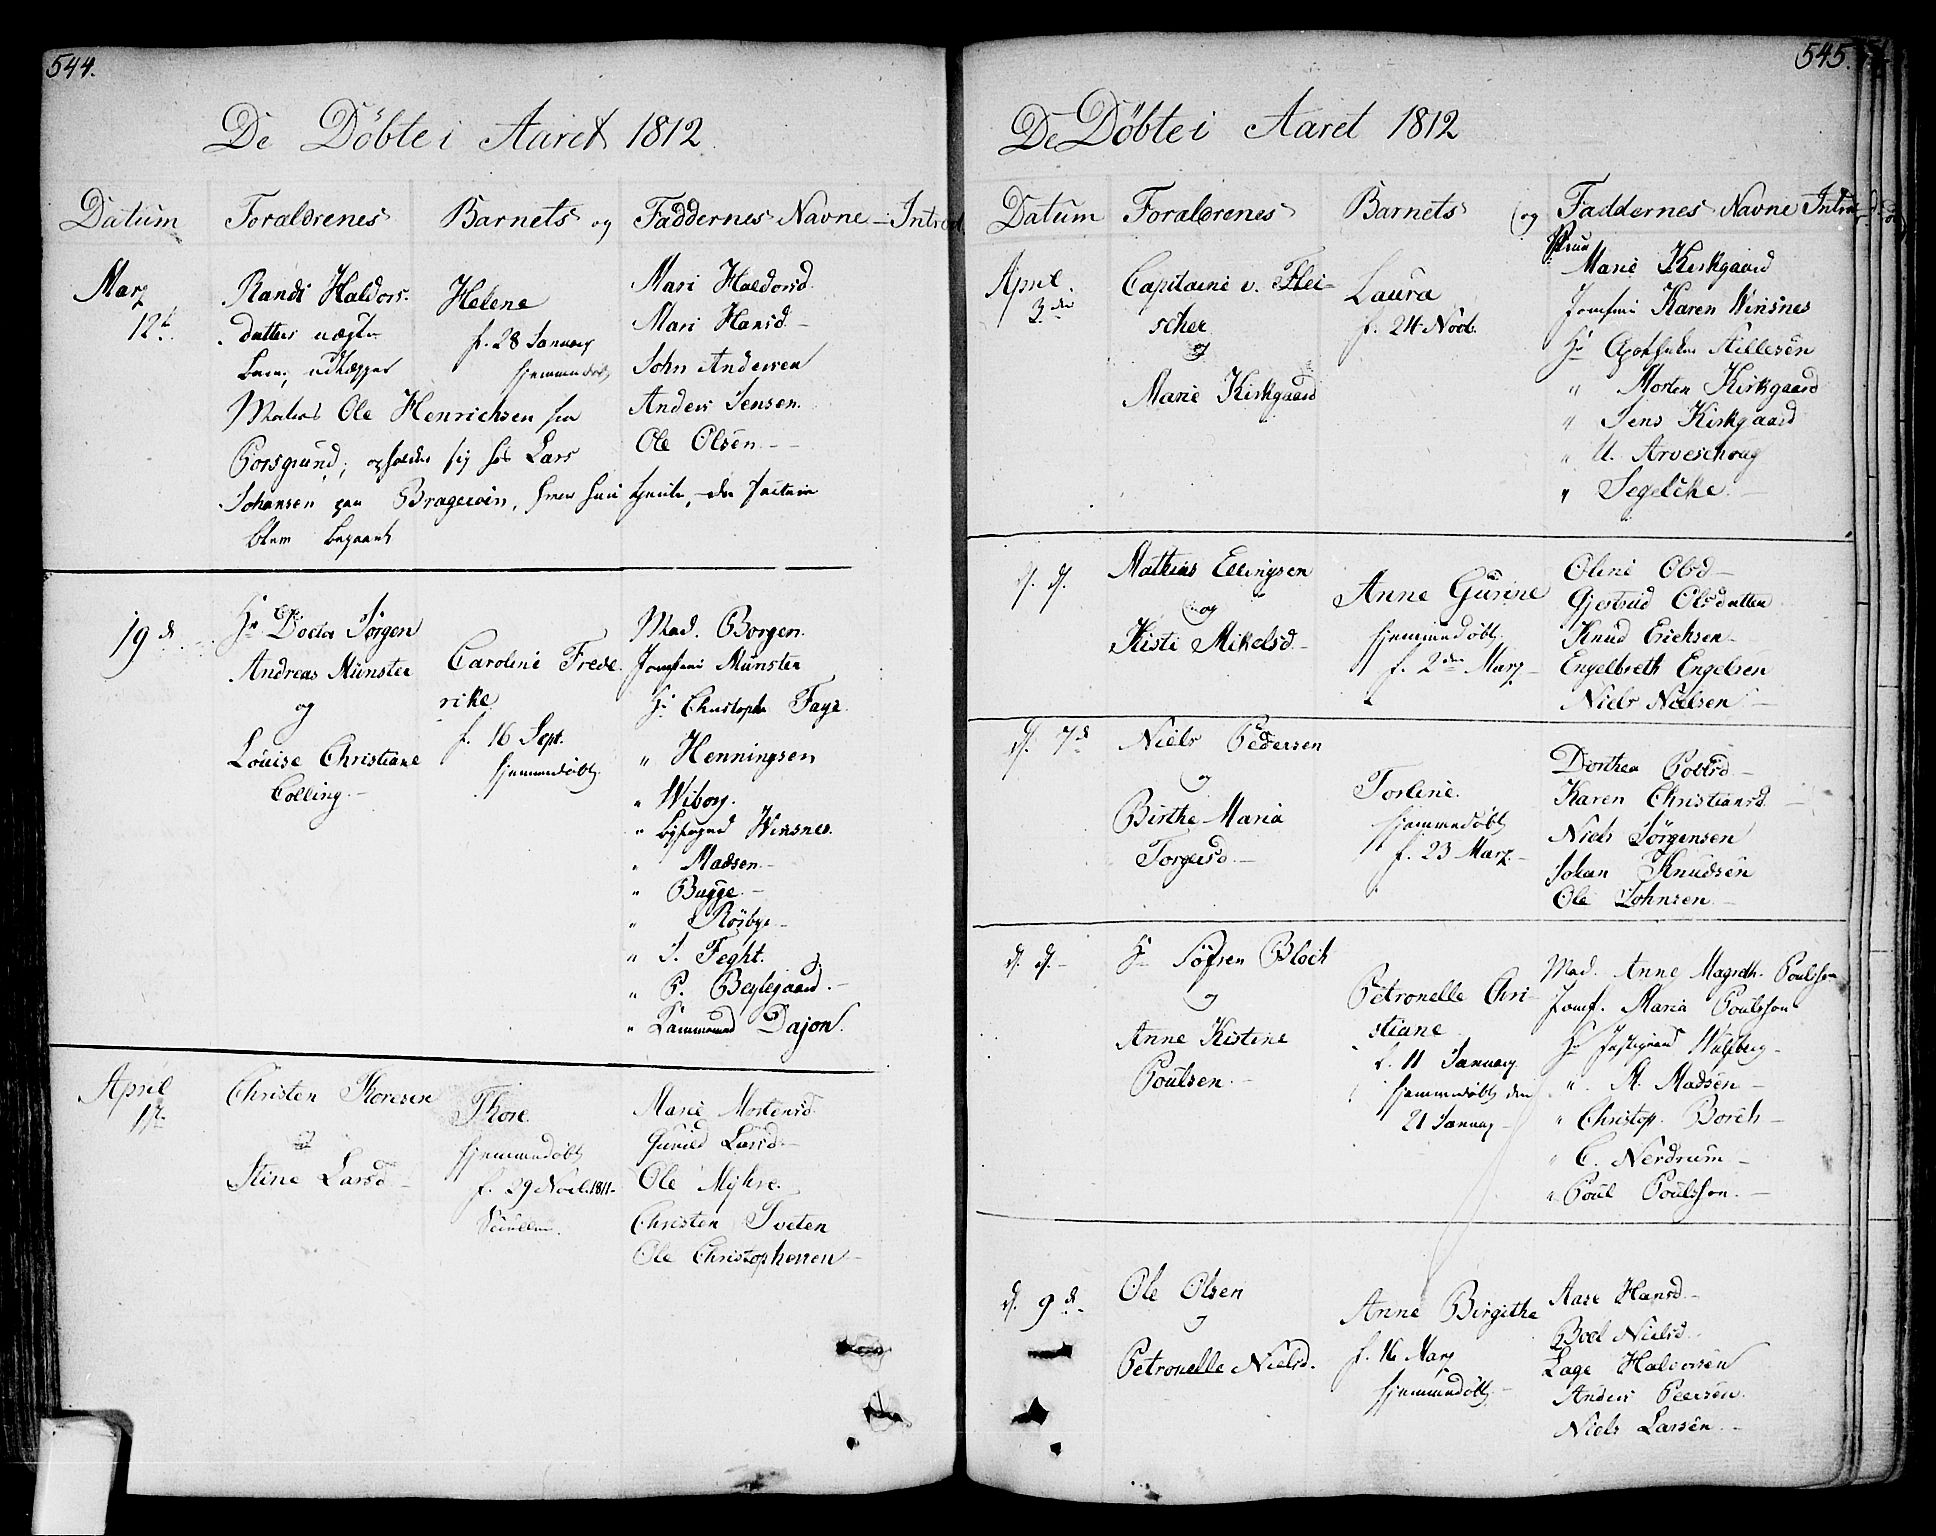 544.
De Döbte i Aaret 1812.
Datum Foraldrenes Barnets og Faddernes Navne - Introd
Marz
12t
Randi Haldors-
datters uægte
Barn, udlægger
Matros Ole Henrichsen fra
Porsgrund; opholder sig hos Lars
Johansen paa Brageröen, hvor hun tjente, -
blem begaaet
Helene
f. 28 January
hjemmedöbt
Mari Haldorsd.
Mari Hansd. -
John Andersen
Anders Jensen.
Ole Olsen. - -
19d
Hr Doctor Jörgen
Andreas Münster
og
Louise Christiane
Colling. -
Caroline Frede
rike
f. 16 Sept.
hjemmedöbt.
Mad. Borgen.
Jomfru Münster
Hr Christopher Faye.
" Henningsen
" Wiborg.
" byfoged Winsnes.
" Madsen. -
" Bugge. -
" Rösbye -
" J. Feght.
" P. Beylegaard. -
" Cammerraad Dajon.
April
1t
Christen Thoresen
og
Stine Larsd -
Thore.
hjemmedöbt
f. 29 Novb. 1811.
Marie Mortensd.
Gunild Larsd. -
Ole Myhre.
Christen Tveten
Ole Christophersen -
545.
De Döbte i Aaret 1812
Datum Foraldrenes Barnets (og Faddernes Navne Introd
April.
3die
Capitaine v. Flei-
scher
og
Marie Kirkgaard
Laura
f. 24 Novb.
Frue
Marie Kirkgaard
Jomfru Karen Winsnes
Hr Apotheker Tillesen
" Morten Kirkgaard
" Jens Kirkgaard
" U. Arveschoug
" Segelcke. -
d. d.
Mathias Ellingsen
og
Kisti Mikelsd. -
Anne Gurine
hjemmedöbt
f. 2den Marz -
Oline Olsd -
Gjertrud Olsdatter
Knud Erichsen -
Engelbreth Engelsen
Niels Nielsen -
d. 7d
Niels Pedersen
og
Birthe Maria
Torgersd. -
Torline.
hjemmedöbt
f. 23 Marz. -
Dorthea Poelsd -
Karen Christiansd. -
Niels Jörgensen
Johan Knudsen
Ole Johnsen. -
d. d. -
Hr Söfren Bloch
og
Anne Kistine
Poulsen. -
Petronelle Chri-
stiane
f. 11 January
hjemmedöbt den
21 January -
Mad. Anne Magreth. Poulsson
Jomf. Maria Poulsson
Hr Justizraad Wulfberg -
" M. Madsen -
" Christop. Borch -
" C. Nerdrum -
" Poul Poulsson. -
d. 9d
Ole Olsen
og
Petronelle Nielsd.
Anne Birgithe
f. 16 Marz
hjemmedöbt -
Aase Hansd. -
Boel Nielsd.
Lage Halvorsen
Anders Peersen.
Niels Larsen. -